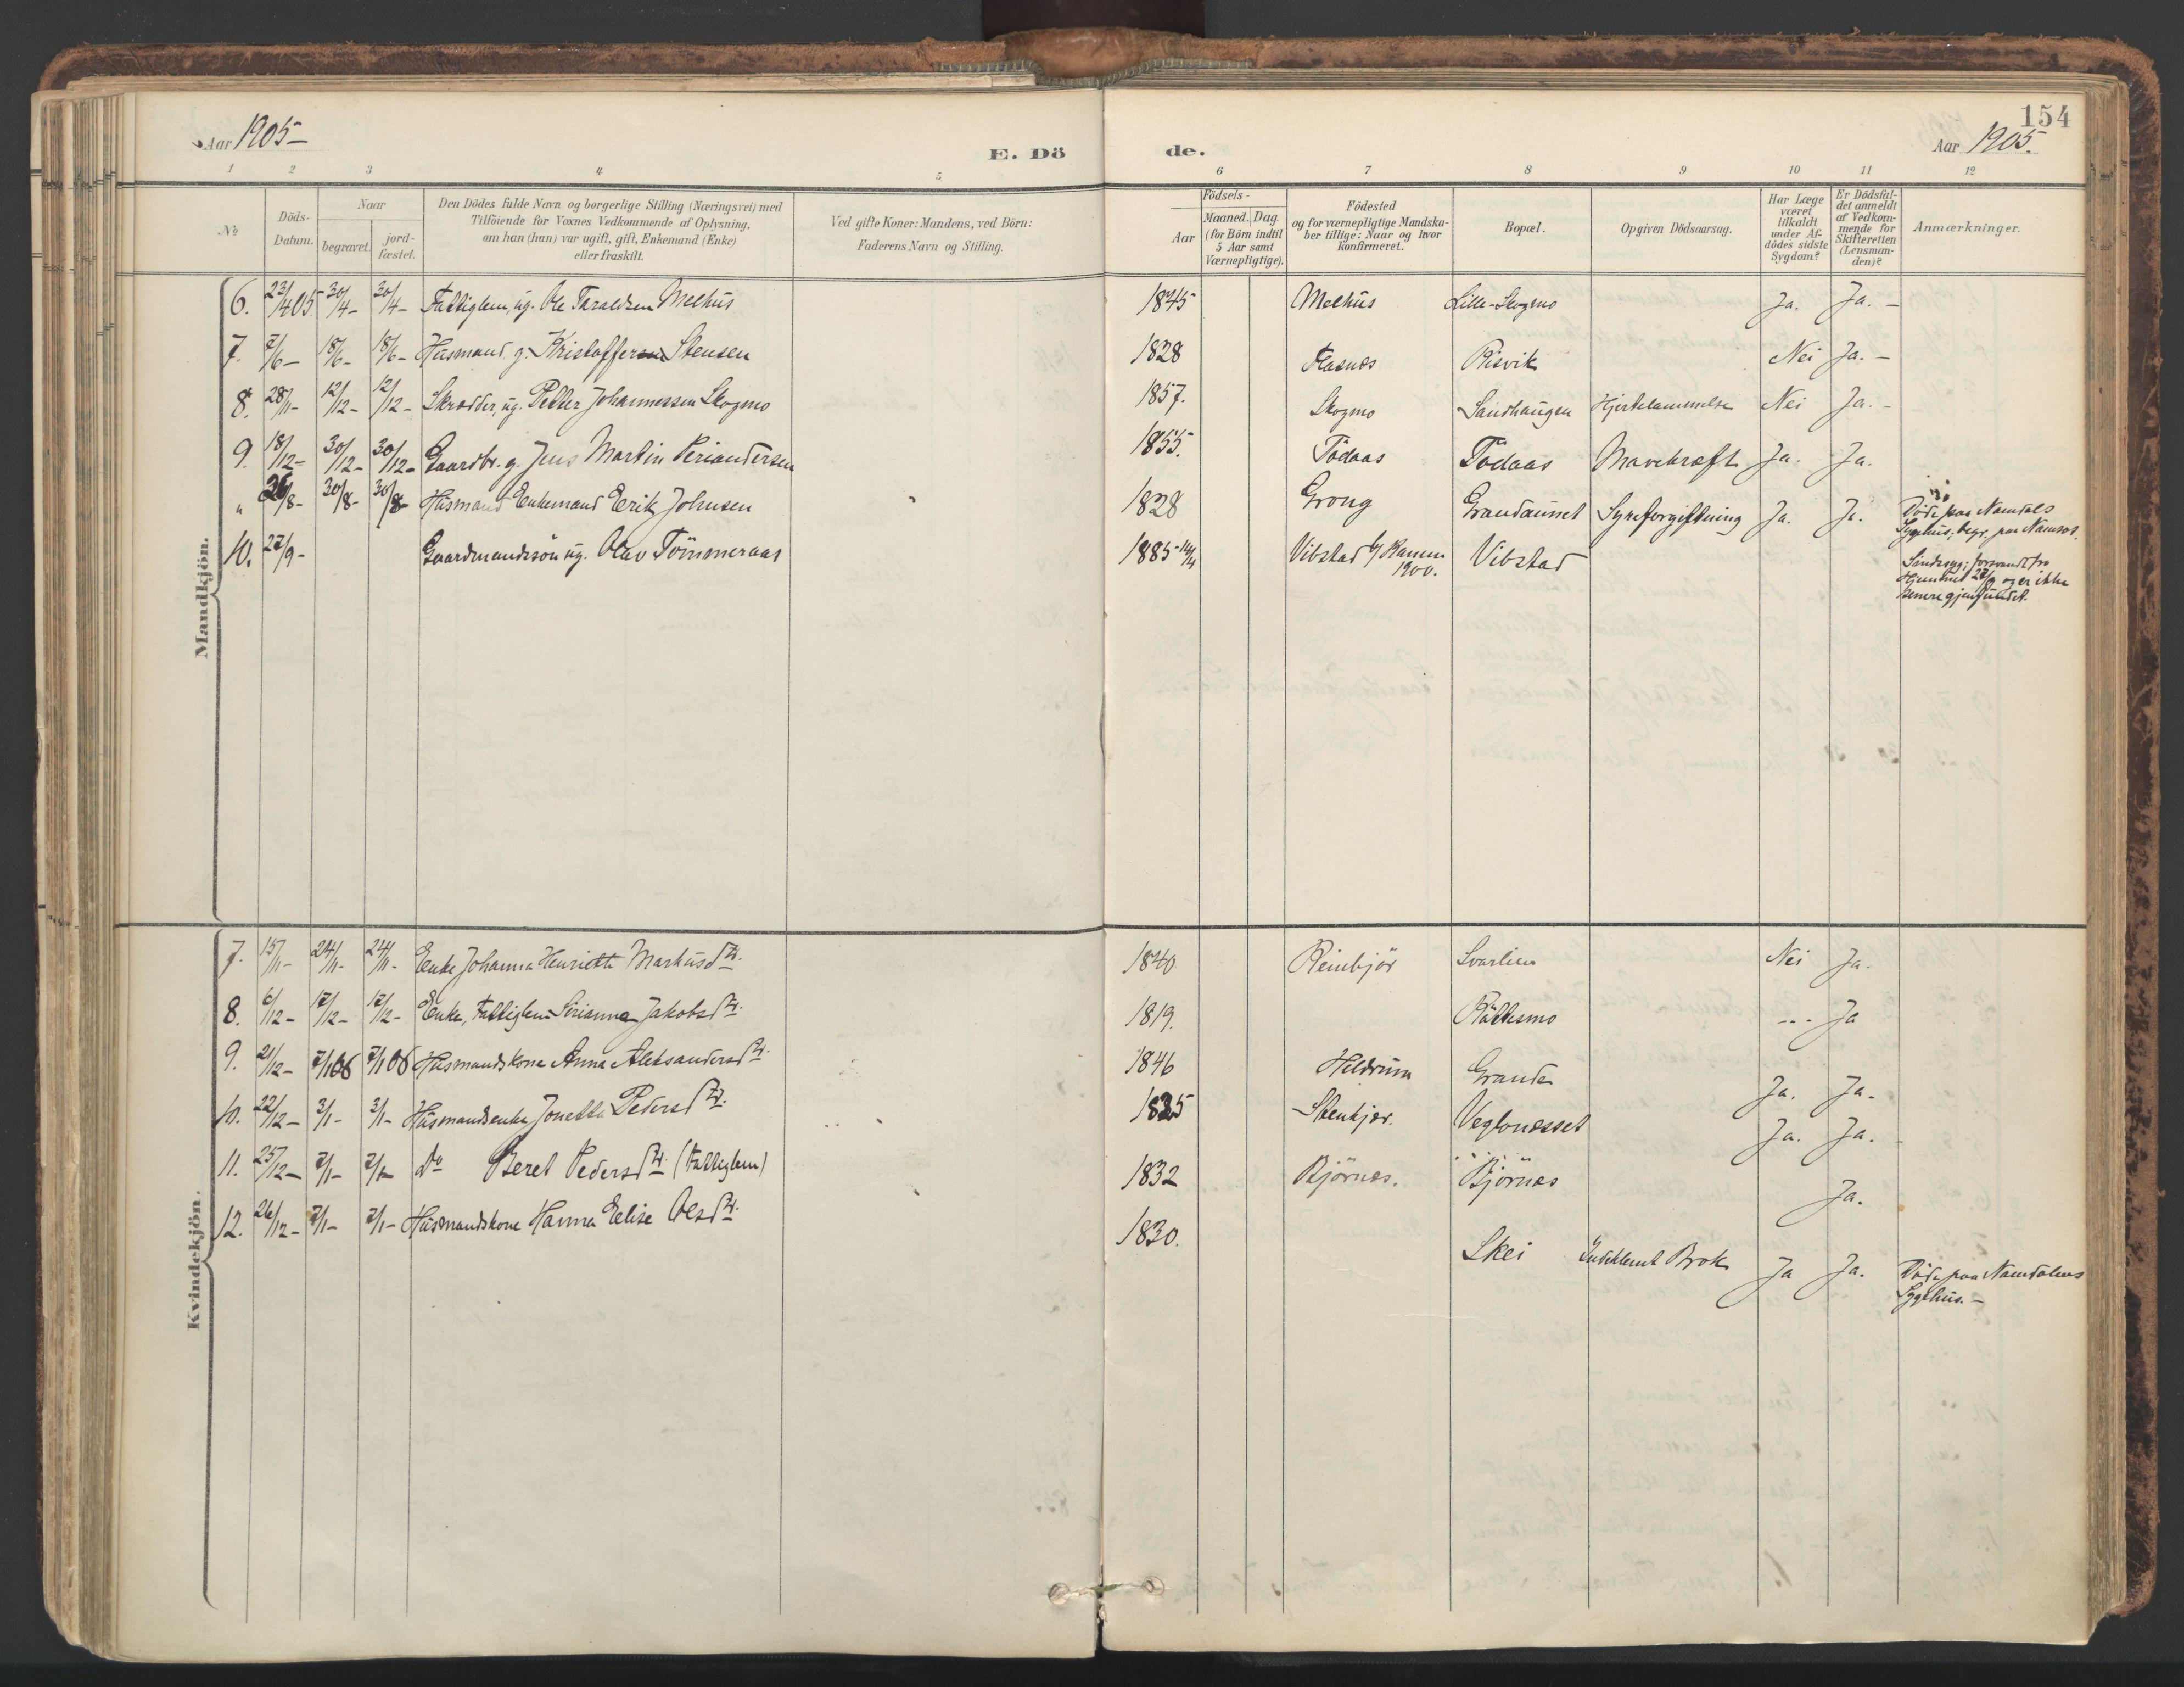 Aar 1905-
E. Dö
de.
154
Aar 1905.
1 2 3 4 5 6 7 8 9 10 11 12
No
Döds-Datum.
Naar
begravet.
jord-fæstet.
Den Dödes fulde Navn og borgerlige Stilling (Næringsvei) med
Tilföiende for Voxnes Vedkommende af Oplysning,
om han (hun) var ugift, gift, Enkemand (Enke)
eller fraskilt.
Ved gifte Koner: Mandens, ved Börn:
Faderens Navn og Stilling.
Födsels-
Aar
Maaned. Dag.
(for Börn indtil
5 Aar samt
Værnepligtige).
Födested
og for værnepligtige Mandska-
ber tillige: Naar og hvor
konfirmeret.
Bopæl.
Opgiven Dödsaarsag.
Har Læge
været
tilkaldt
under Af-
dödes sidste
Sygdom?
Er Dödsfal-
det anmeldt
af Vedkom-
mende for
Skifteretten
(Lensman-
den)?
Anmærkninger.
Mandkjön.
6. 23/4 05 30/4- 30/4- Fattiglem, ug. Ole Taraldsen Melhus 1845 Melhus Lille-Skogmo Ja. Ja. -
7. 7/6- 18/6- 18/6- Husmand. g. Kristoffer Stensen 1828 Flasnes Risvik Nei Ja. -
8. 28/11- 12/12- 12/12- Skrædder, ug. Petter Johannessen Skogmo 1857. Skogmo Sandhaugen Hjertelammelse Nei Ja. -
9. 18/12- 30/12- 30/12- Gaardbr. g. Jens Martin Periandersen 1855. Tödaas Tödaas Mavekræft Ja. Ja.
" 26/8- 30/8- 30/8- Husmand Enkemand Eerik Johnsen 1828 Grong Grandaunet Syreforgiftning Ja. Ja. Döde paa Namdals
Sygehus, begr. paa Namsos.
10. 27/9- Gaardmandssön ug. Olav Tömmeraas 1885 14/4 Vibstad Ranem
1900. Vibstad Sindssyg; forsvandt fra
Hjemmet 27/9 og er ikke
senere gjenfundet.
Kvindekjön.
7. 15/11- 24/11- 24/11- Enke Johanna Henriette Markusdtr. 1840. Reinbjör Svarlien Nei Ja.
8. 6/12- 17/12- 17/12- Enke, Fattiglem Sirianna Jakobsdtr. 1819. Råttesmo --- Ja
9. 21/12- 7/1 06 7/1 06 Husmandskone Anna Aleksandersdtr. 1846 Heldrum Grande Ja. Ja-
10. 22/12- 3/1- 3/1- Husmandsenke Jonetta Pedersdtr. 1835 Stenkjær. Veglonesset Ja. Ja.
11. 25/12- 7/1- 7/1- do Beret Pedersdtr. (Fattiglem) 1832 Björnes. Björnes Ja.
12. 26/12- 7/1- 7/1- Husmandskone Hanna Elise Olesdtr. 1830. Skei Indeklemt Brok Ja Ja. Döde paa Namdalens
Sygehus. -